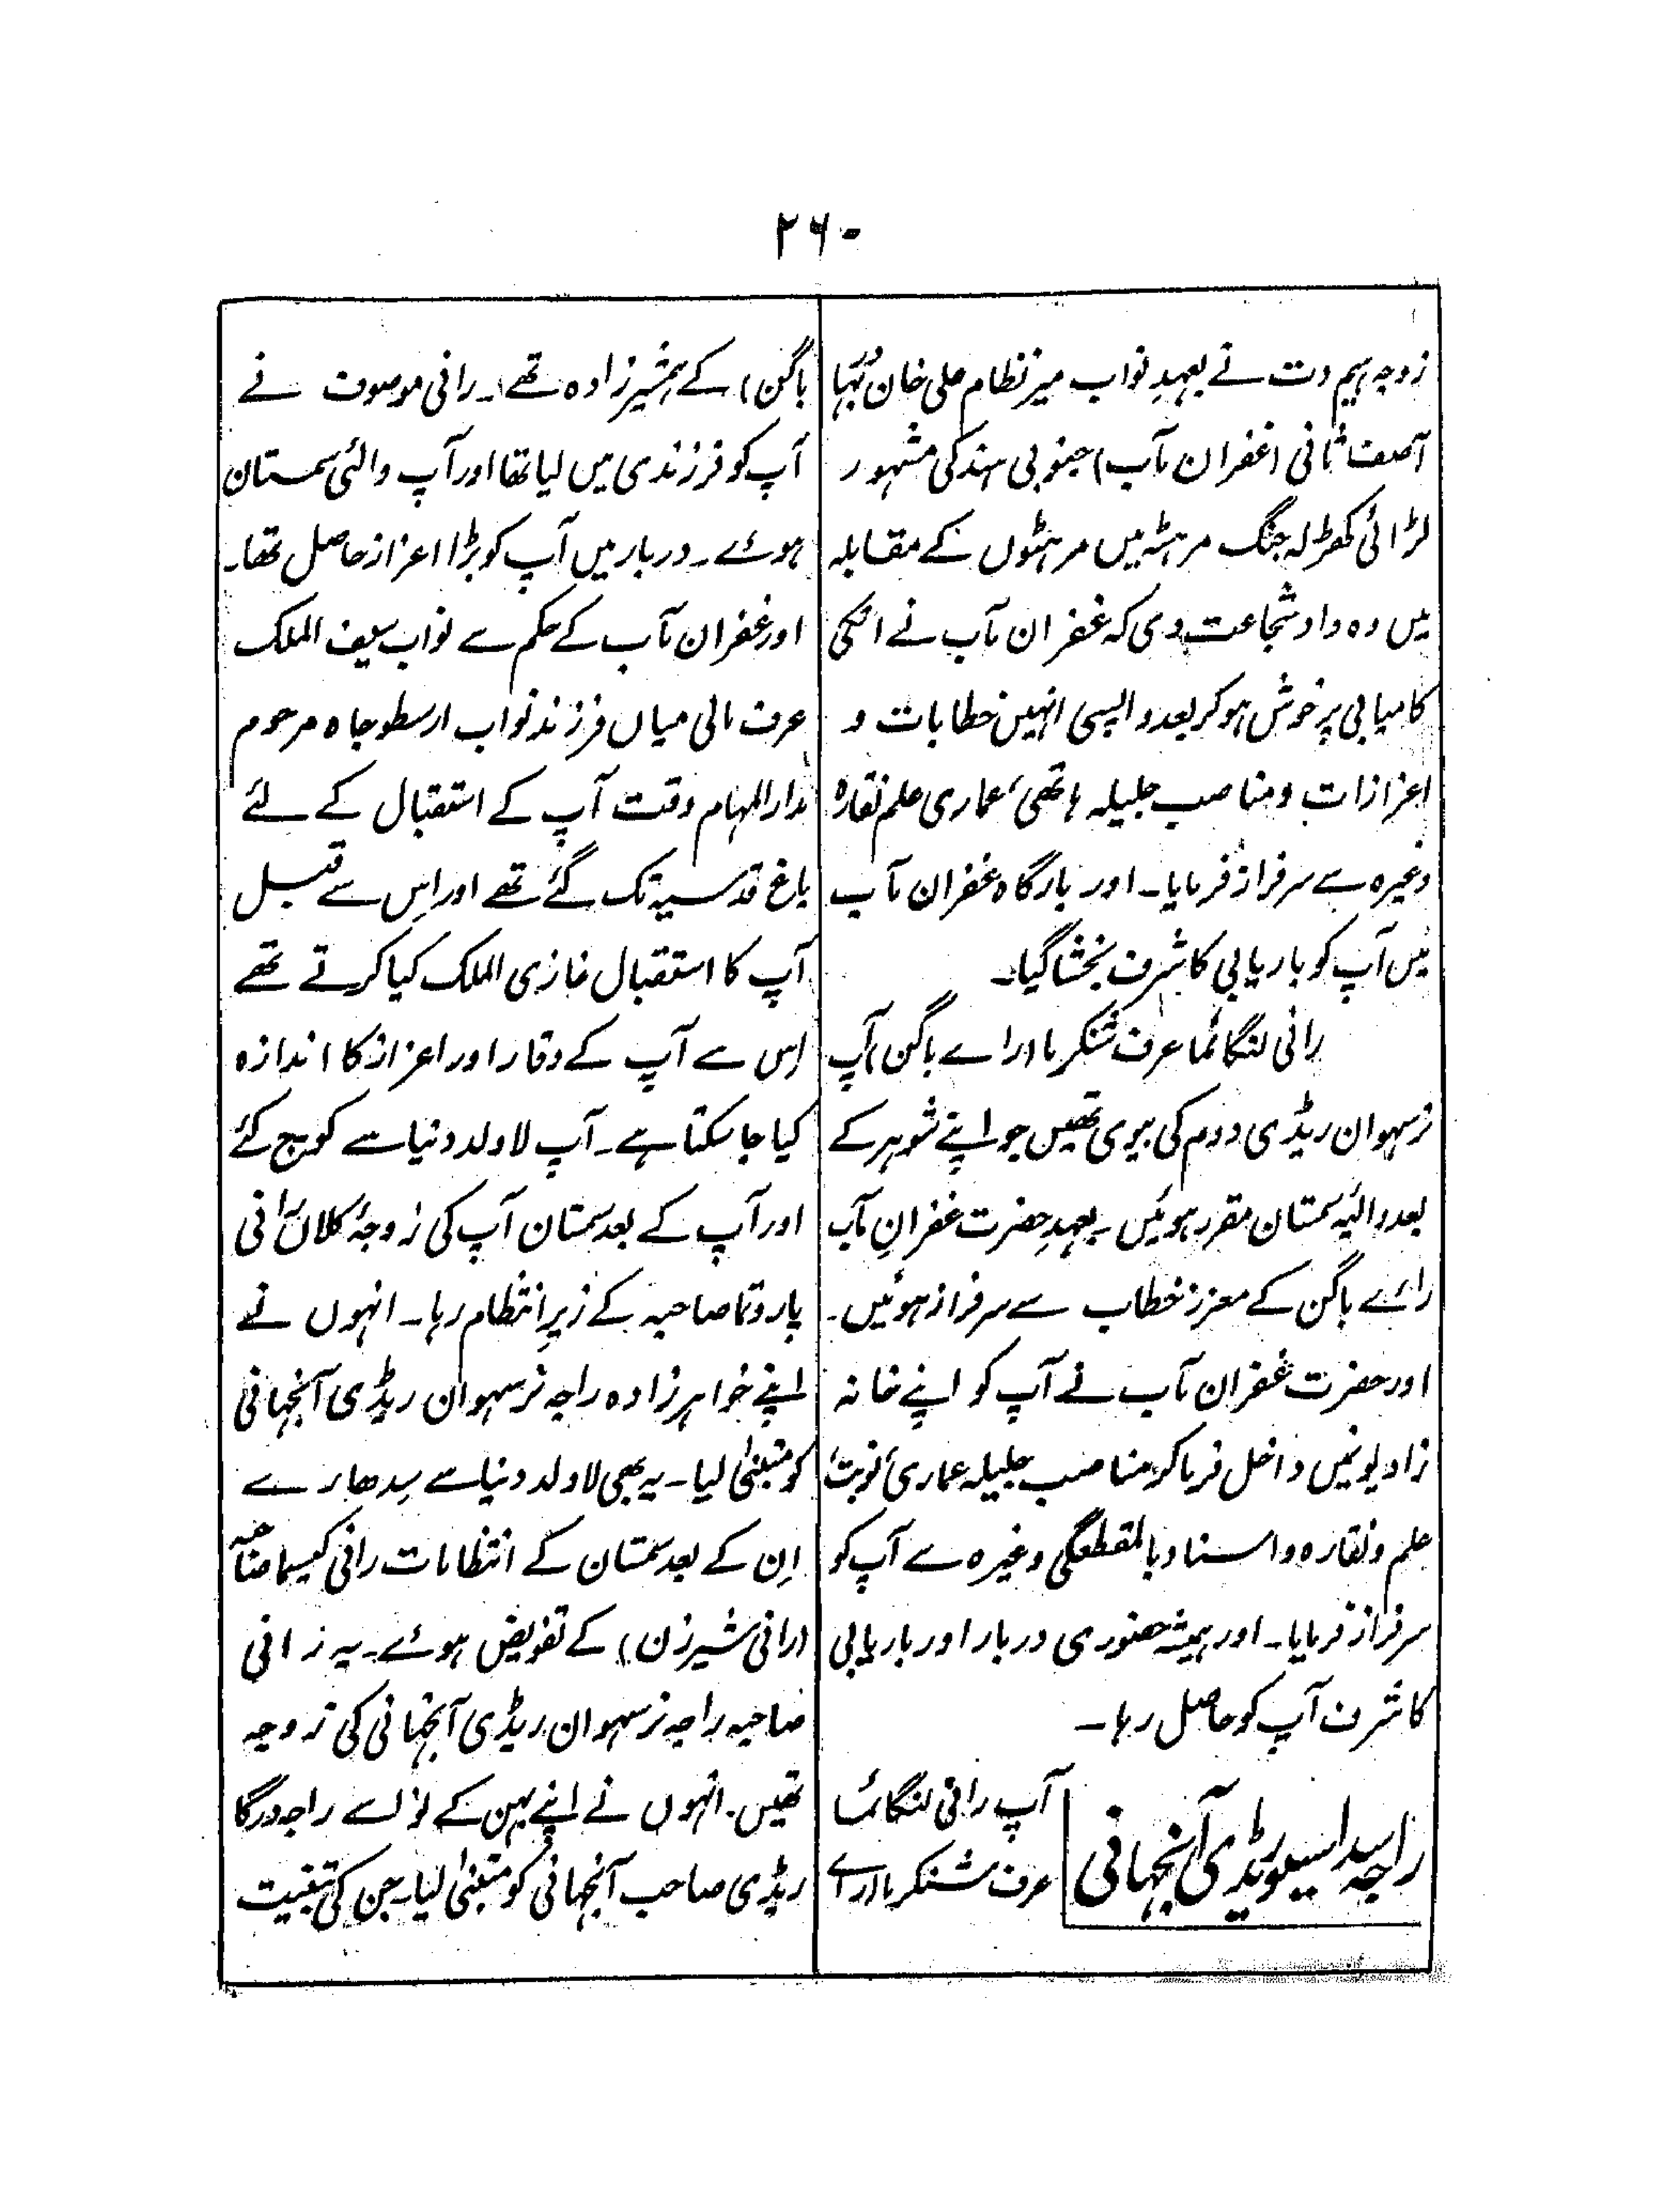 ۲۶۰
زوجہ ہیم وت نے بعہدِ نواب میر نظام علی خان بہا
آصف ثانی (غفران مآب) جنوبی ہند کی مشہور
لڑائی کھڑلہ جنگ مرہٹہ میں مرہٹوں کے مقابلہ
میں وہ داد شجاعت دی کہ غفران مآب نے انکی
کامیابی پر خوش ہو کر بعد واپسی انہیں خطابات و
اعزازات و مناصب جلیلہ ہاتھی، عماری علم نقارہ
وغیرہ سے سرفراز فرمایا۔ اور بارگاہ غفران مآب
میں آپ کو باریابی کا شرف بخشا گیا۔
رانی لنگائما عرف شنکرما (رائے باگن) آپ
نرسہوان ریڈی دوم کی بیوی تھیں جو اپنے شوہر کے
بعد والیہ سمستان مقرر ہوئیں۔ بعہدِ حضرت غفران مآب
رائے باگن کے معزز خطاب سے سرفراز ہوئیں۔
اور حضرت غفران مآب نے آپ کو اپنے خانہ
زادیونمیں داخل فرما کر مناصب جلیلہ عماری، نوبت،
علم و نقارہ و اسناد بالمقطعگی وغیرہ سے آپ کو
سرفراز فرمایا۔ اور ہمیشہ حضوری دربار اور باریابی
کا شرف آپ کو حاصل رہا۔
راجہ سداسیوریڈی آنجہانی
آپ رانی لنگائما
عرف شنکرما (رائے
باگن) کے ہمشیرزادہ تھے۔ رانی موصوف نے
آپ کو فرزندی میں لیا تھا اور آپ والئی سمستان
ہوئے۔ دربار میں آپ کو بڑا اعزاز حاصل تھا۔
اور غفران مآب کے حکم سے نواب سیف الملک
عرف مالی میاں فرزند نواب ارسطو جاہ مرحوم
مدارالمہام وقت آپ کے استقبال کے لئے
باغ قدسیہ تک گئے تھے اور اِس سے قبل
آپ کا استقبال غازی الملک کیا کرتے تھے
اِس سے آپ کے وقار اور اعزاز کا اندازہ
کیا جا سکتا ہے۔ آپ لاولد دنیا سے کوچ کئے
اور آپ کے بعد سمستان آپ کی زوجۂ کلاں رانی
پاروتما صاحبہ کے زیرِ انتظام رہا۔ انہوں نے
اپنے خواہرزادہ راجہ نرسہوان ریڈی آنجہانی
کو متبنیٰ لیا۔ یہ بھی لاولد دنیا سے سِدھارے
اِن کے بعد سمستان کے انتظامات رانی کیسما صاحبہ
(رانی شیرزن) کے تفویض ہوئے۔ یہ رانی
صاحبہ راجہ نرسہوان ریڈی آنجہانی کی زوجہ
تھیں۔ انہوں نے اپنے بہن کے نواسے راجہ درگا
ریڈی صاحب آنجہانی کو متبنیٰ لیا۔ جن کی تبنیت